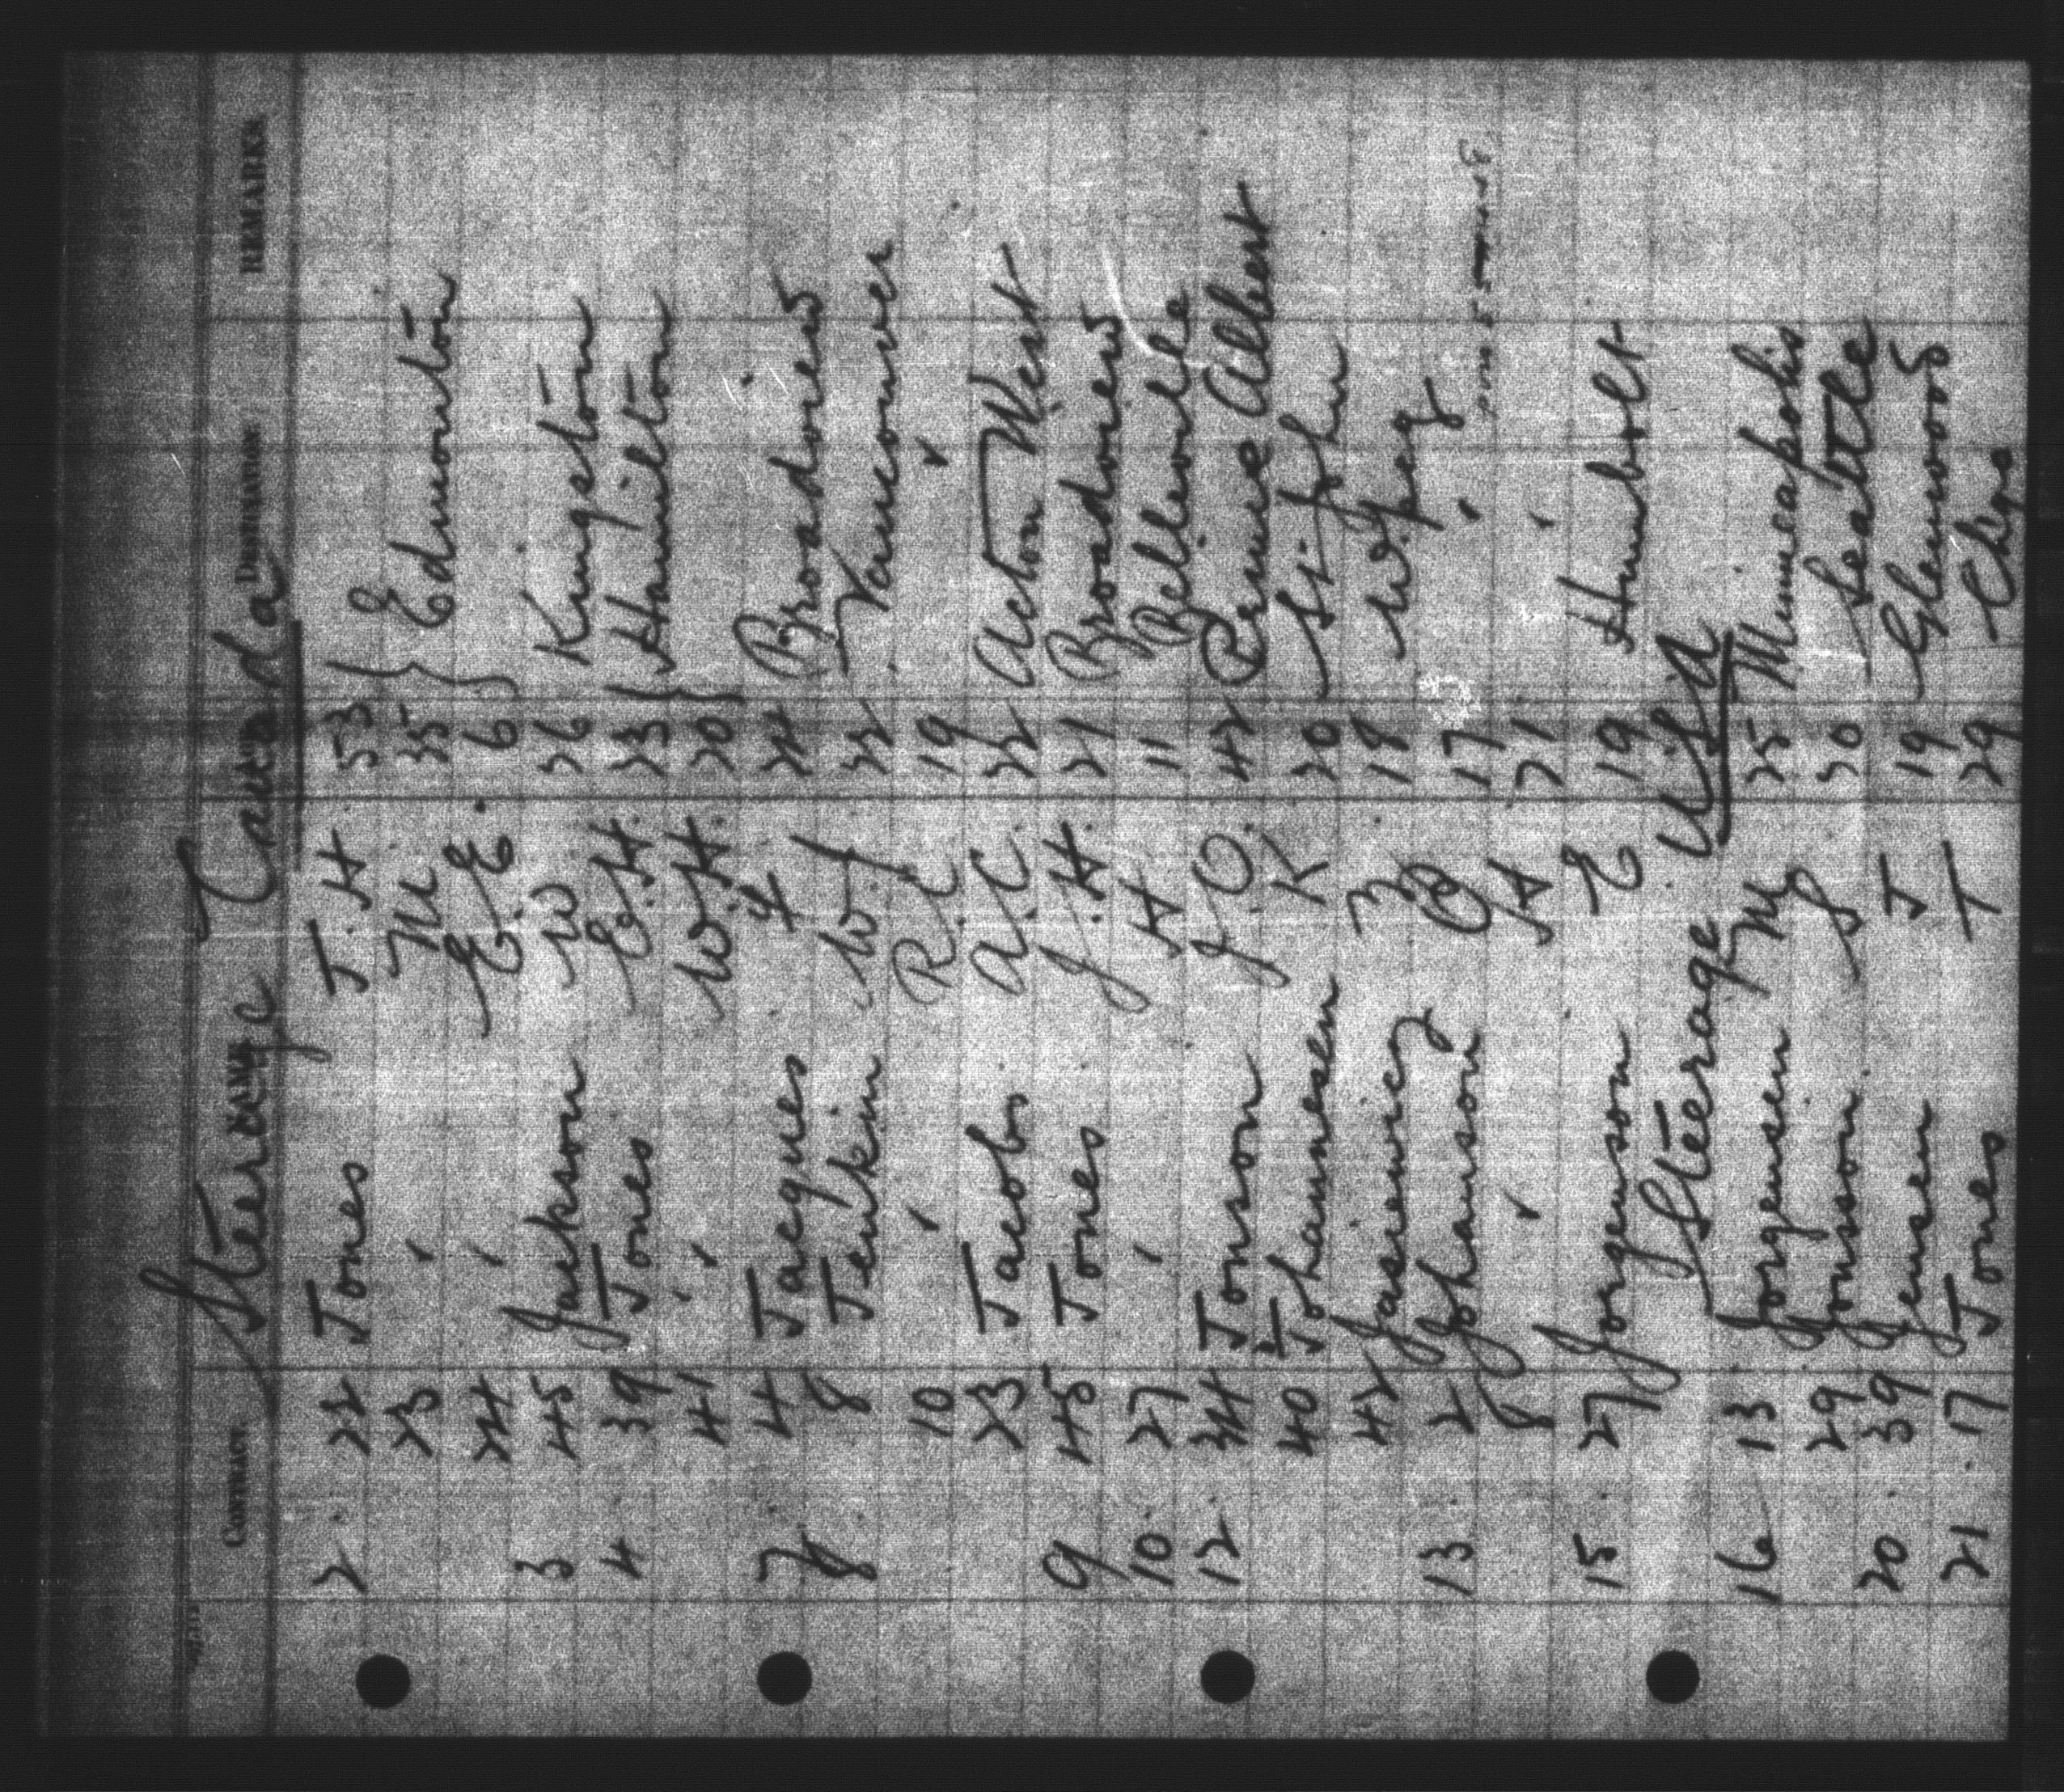 Steerage Canada
CONTRACT NAME DESTINATION REMARKS
2 22 Jones J.H 53 }
23 " M 35 } Edmonton
24 " E.E. 6 }
3 45 Jackson W 26 Kingston
4 39 Jones E.H. 23 } Hamilton
41 " " W.H. 20 }
7 4 Jacques F 24 Broadview
8 8 Jenkin W J 22 Vancouver
10 " R.C 19 "
23 Jacobs A.C. 22 Acton West
9 45 Jones J.H. 21 Broadview
10 27 " H 11 Belleville
12 34 Jonson J O. 42 Prince Albert
40 Johannesen K 20 St John
42 Jasiewicz 18 W'peg
13 2 Johanson 17 "
8 " A 21 "
15 27 Jorgenson E 19 Humbolt
Steerage USA
16 13 Jorgensen M 25 Minneapolis
29 Jonsson S 30 Seattle
20 39 Jensen J 19 Glenwood
21 17 Jones T 29 Chgo